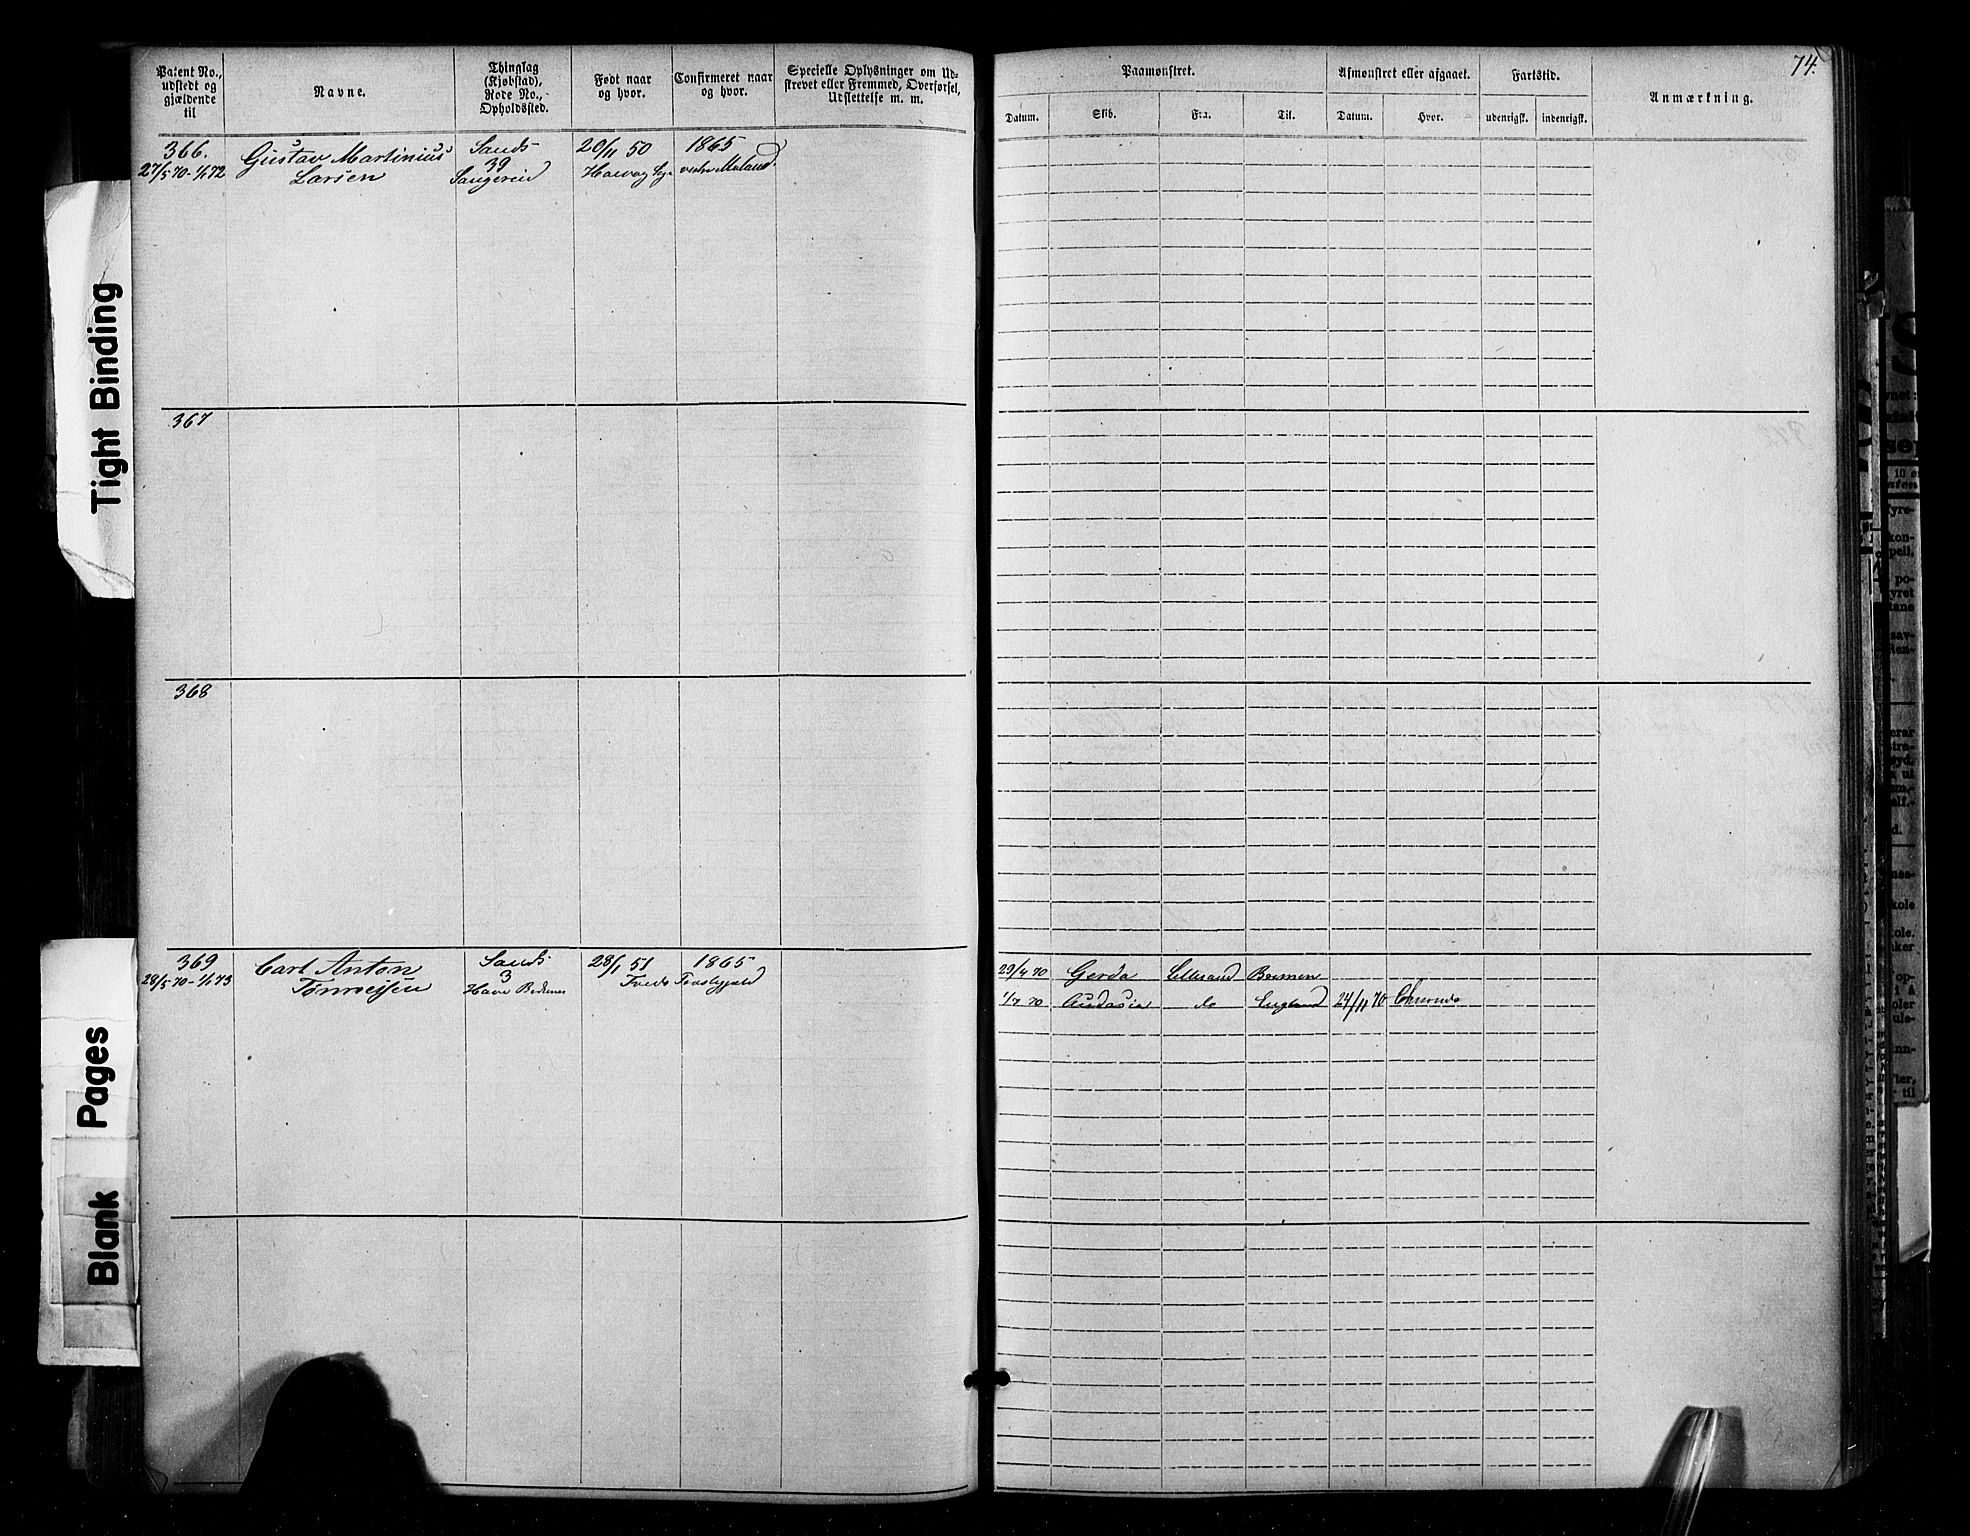 Tight Binding
Blank Pages
Patent No., udstedt og gjældende til
Navne.
Thinglag (Kjøbstad), Rode No., Opholdssted.
Født naar og hvor.
Confirmeret naar og hvor.
Specielle Oplysninger om Udskrevet eller Fremmed, Overførsel, Udslettelse m. m.
Paamønstret.
Afmønstret eller afgaaet.
Fartstid.
Anmærkning.
74.
Datum.
Skib.
Fra.
Til.
Datum.
Hvor.
udenrigsk.
indenrigsk.
366.
27/5 70 - 1/1 72
Gustav Martinius
Larsen
Sands
39
Sangereid
20/11 50
1865
vestre Moland
367
368
369
28/5 70 - 1/1 73
Carl Anton
Tönnesen
Sands
3
28/1 51
1865
29/4 70 Gerda Lillesand Bremen
1/7 70 do England 24/11 70